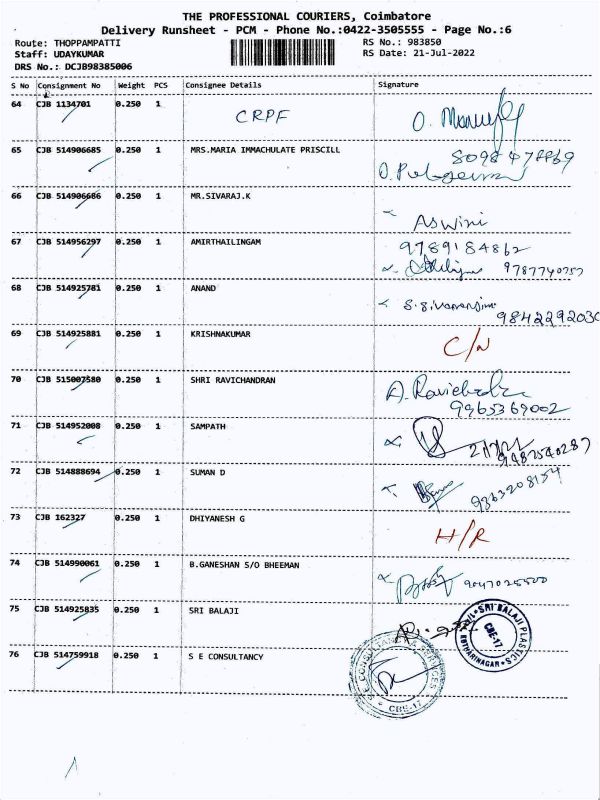 THE PROFESSIONAL COURIERS, Coimbatore
Delivery Runsheet - PCM - Phone No.:0422-3505555 - Page No.:6
Route: THOPPAMPATTI RS No.: 983850
Staff: UDAYKUMAR RS Date: 21-Jul-2022
DRS No.: DCJB98385006
S No Consignment No Weight PCS Consignee Details Signature
64 CJB 1134701 0.250 1 CRPF
65 CJB 514906685 0.250 1 MRS.MARIA IMMACHULATE PRISCILL
66 CJB 514906686 0.250 1 MR.SIVARAJ.K
Aswini
67 CJB 514956297 0.250 1 AMIRTHAILINGAM 9789184862
9787740757
68 CJB 514925781 0.250 1 ANAND
9842292030
69 CJB 514925881 0.250 1 KRISHNAKUMAR C/N
70 CJB 515007580 0.250 1 SHRI RAVICHANDRAN A. Ravichandra
9965369002
71 CJB 514952008 0.250 1 SAMPATH
72 CJB 514888694 0.250 1 SUMAN D 9363208154
73 CJB 162327 0.250 1 DHIYANESH G H/R
74 CJB 514990061 0.250 1 B.GANESHAN S/O BHEEMAN
75 CJB 514925835 0.250 1 SRI BALAJI
SRI BALAJI PLASTICS
CBE-17
76 CJB 514759918 0.250 1 S E CONSULTANCY
CBE-17